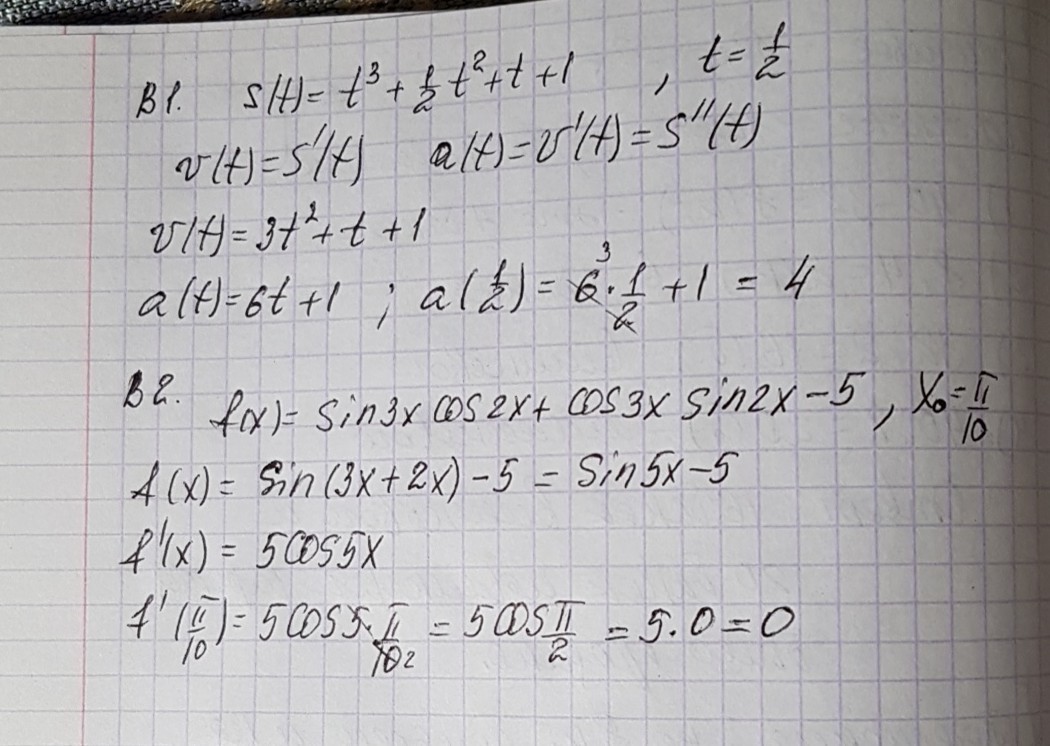 В1. s(t)= t³ + 1/2 t² + t + 1 , t = 1/2
v(t)=S'(t) a(t)=v'(t)=S''(t)
v(t)= 3t² + t + 1
a(t)=6t+1 ; a(1/2) = 6³·1/2 + 1 = 4
В2. f(x)= sin3x cos2x + cos3x sin2x − 5 , X₀=π/10
f(x)= sin(3x+2x) − 5 = Sin5x−5
f'(x) = 5cos5x
f'(π/10)= 5cos5·π/10 2 = 5cosπ/2 = 5·0=0